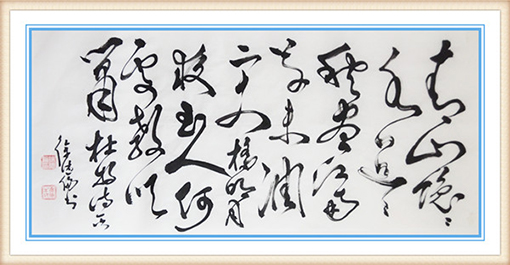 青山隐々
水迢々
秋尽江南
草未凋
二十四橋明月
夜玉人何
處教吹
簫 杜牧诗